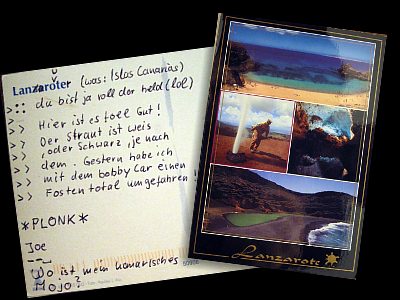 Lanzaröter (was: Islas Canarias)
>:: du bist ja voll der held (lol)
>> Hier ist es toll Gut!
>> Der Straut ist weis
>> , oder Schwarz, je nach
>> dem. Gestern habe ich
>> mit dem bobby Car einen
>> Fosten total umgefahren!
*PLONK*
Joe
---
Wo ist mein kanarisches
Mojo?
Lanzarote